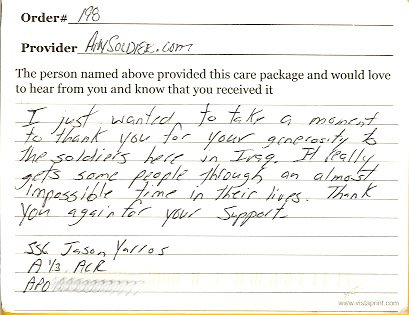 Order# 198
Provider AnySoldier.com
The person named above provided this care package and would love
to hear from you and know that you received it
I just wanted to take a moment
to thank you for your generosity to
the soldiers here in Iraq. It really
gets some people through an almost
impossible time in their lives. Thank
you again for your support.
SSG Jason Yarros
A 1/3 ACR
APO
www.vistaprint.com